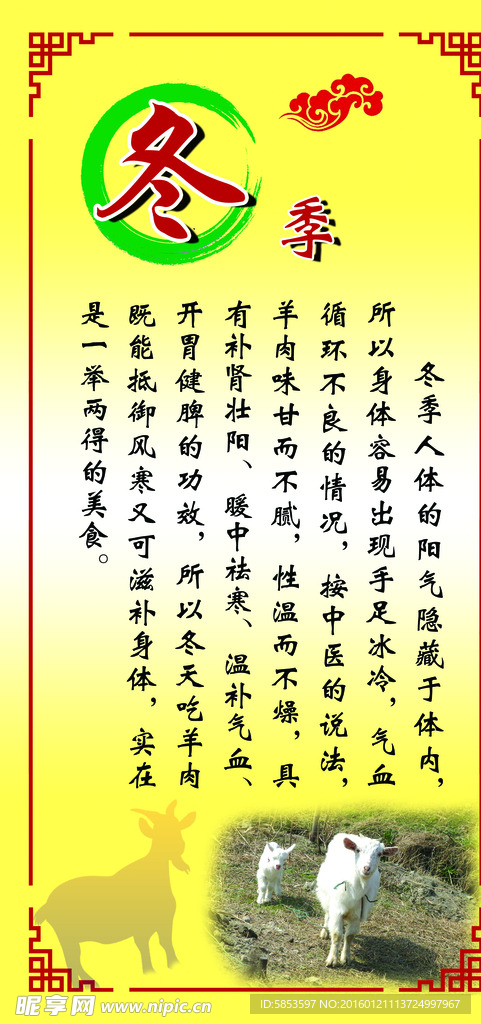 冬
季
冬季人体的阳气隐藏于体内，
所以身体容易出现手足冰冷，气血
循环不良的情况，按中医的说法，
羊肉味甘而不腻，性温而不燥，具
有补肾壮阳、暖中祛寒、温补气血、
开胃健脾的功效，所以冬天吃羊肉
既能抵御风寒又可滋补身体，实在
是一举两得的美食。
昵享网 www.nipic.cn
ID:5853597 NO:20160121113724997967